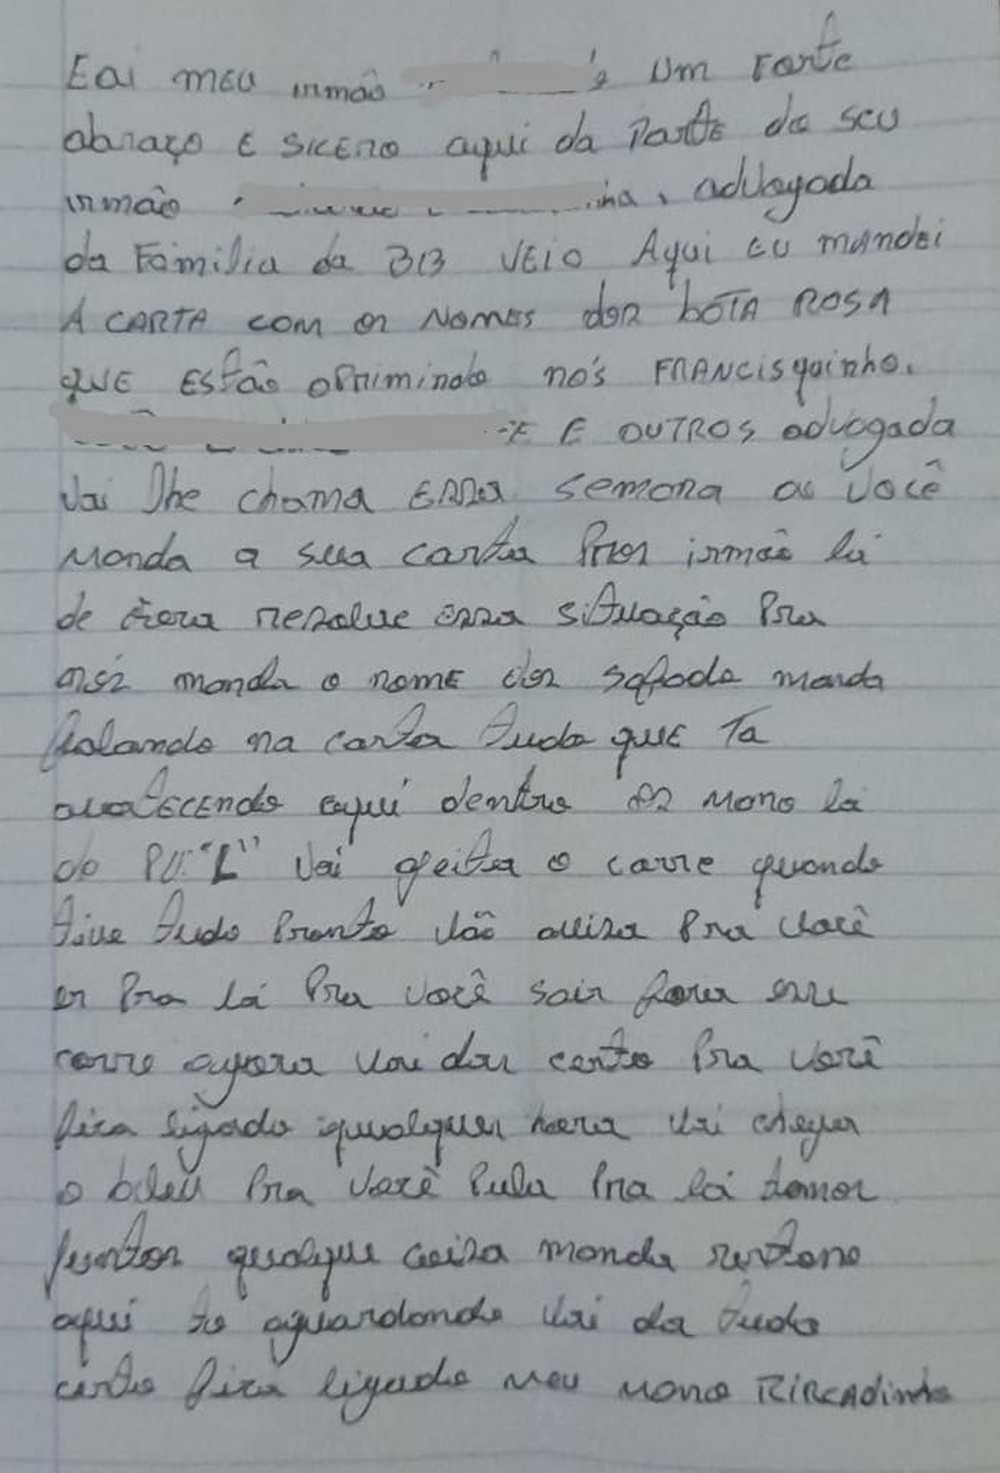 Eai meu irmão um forte
abraço e sicero aqui da parte do seu
irmão advogada
da Familia da BIB veio Aqui eu mandei
A CARTA com os Nomes dos bOTA ROSA
QUE EStão oprimindo nos FRANCisquinho.
E OUTROS advogada
vai lhe chama essa semana ai você
manda a sua carta Pros irmão lá
de fora resolve essa situação Pra
nós manda o nome dos safado manda
falando na carta tudo que Ta
acotecendo aqui dentro os mano lá
do PV."L" vai geita o corre quando
tive tudo pronto vão avisa Pra você
is Pra lá Pra você sair fora esse
corre agora vai dar certo Pra você
fica ligado iqualquer hora vai chegar
o bdeu Pra você Pula Pra lá tamos
juntos qualque coisa manda retono
aqui to aguardando vai da tudo
certo fica ligado meu mano RiRcadinho